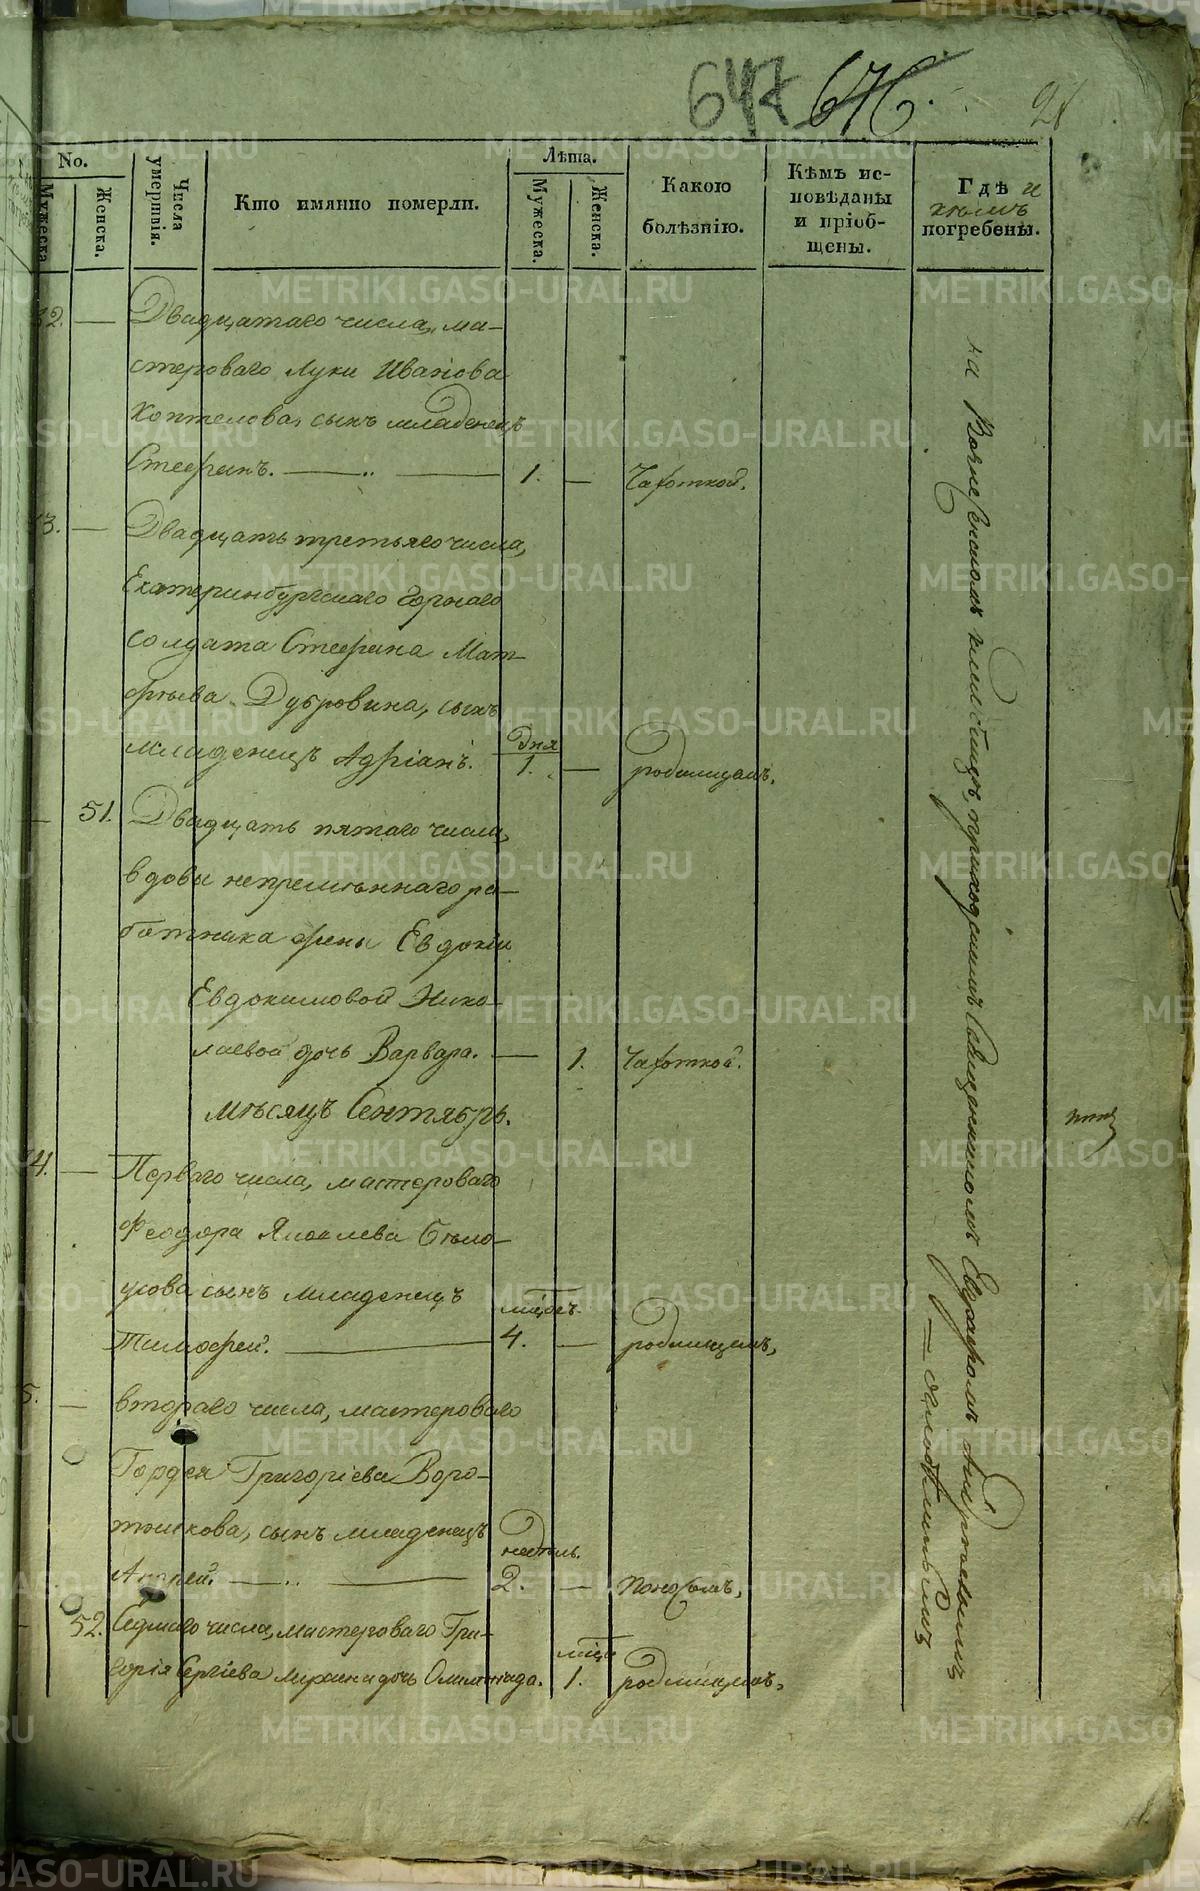 647 676.
21
No.
Мужеска
Женска.
Числа умершвія.
Кто имянно померли.
Лѣта.
Мужеска.
Женска.
Какою болѣзнію.
Кѣмъ исповѣданы и пріобщены.
Гдѣ и кѣмъ погребены.
32. — Двадцатаго числа, ма-
стероваго Луки Иванова
Коптелова, сынъ младенецъ
Стефанъ. — 1. — Чахоткой.
33. — Двадцать третьяго числа,
Екатеринбургскаго Горнаго
солдата Стефана Мат-
фѣева Дубровина, сынъ
младенецъ Адріанъ. Дня 1. — родимцемъ.
— 51. Двадцать пятаго числа,
вдовы непремѣннаго ра-
ботника жены Евдокіи
Евдокимовой Нико-
лаевой дочь Варвара. — 1. Чахоткой.
Мѣсяцъ Сентябрь.
34. — Перваго числа, мастероваго
Феодора Яковлева Бѣло-
усова сынъ младенецъ
Тимофей. — мѣсец. 4. — родимцемъ,
35. — втораго числа, мастероваго
Гордея Григоріева Воро-
тникова, сынъ младенецъ
Андрей. — недѣль. 2. — поносомъ,
— 52. Седмаго числа, мастероваго Гри-
горія Сергіева дочь Олимпіада. мѣсц 1. родимцемъ,
на Вознесенскомъ кладбищѣ, приходскимъ Священникомъ Евграфомъ